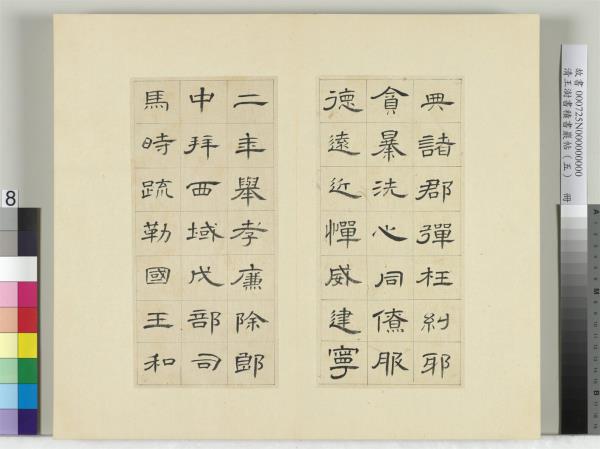 典諸郡彈枉糾邪
貪暴洗心同僚服
德遠近憚威建寧
二年舉孝廉除郎
中拜西域戊部司
馬時疏勒國王和
故書 000725N000000000
清王澍書積書巖帖(五) 冊
8
A
M
B